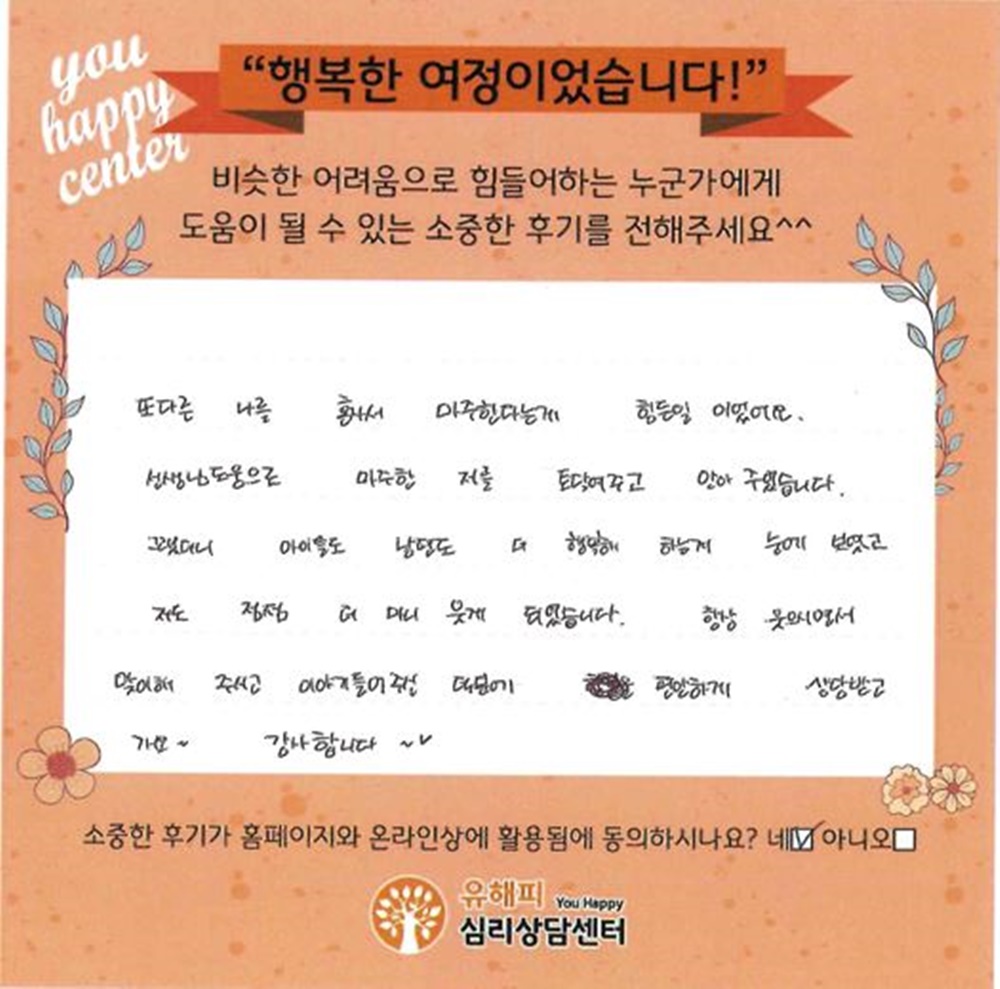 you
happy
center
“행복한 여정이었습니다!”
비슷한 어려움으로 힘들어하는 누군가에게
도움이 될 수 있는 소중한 후기를 전해주세요^^
또다른 나를 혼자서 마주한다는게 힘든일 이었어요.
선생님도움으로 마주한 저를 토닥여주고 안아 주었습니다.
그랬더니 아이들도 남편도 더 행복해 하는게 눈에 보였고
저도 점점 더 많이 웃게 되었습니다. 항상 웃으시면서
맞이해 주시고 이야기들어주신 덕분에 편안하게 상담받고
가요~ 감사합니다 ~♥
소중한 후기가 홈페이지와 온라인상에 활용됨에 동의하시나요? 네☑ 아니오☐
유해피 You Happy
심리상담센터